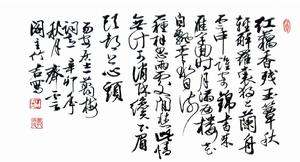 红藕香残玉簟秋
轻解罗裳独上兰舟
云中谁寄锦书来
雁字回时月满西楼花
自飘零水自流一
种相思两处闲愁此情
无计可消除才下眉
头却上心头
一剪梅
词辛卯年
秋月